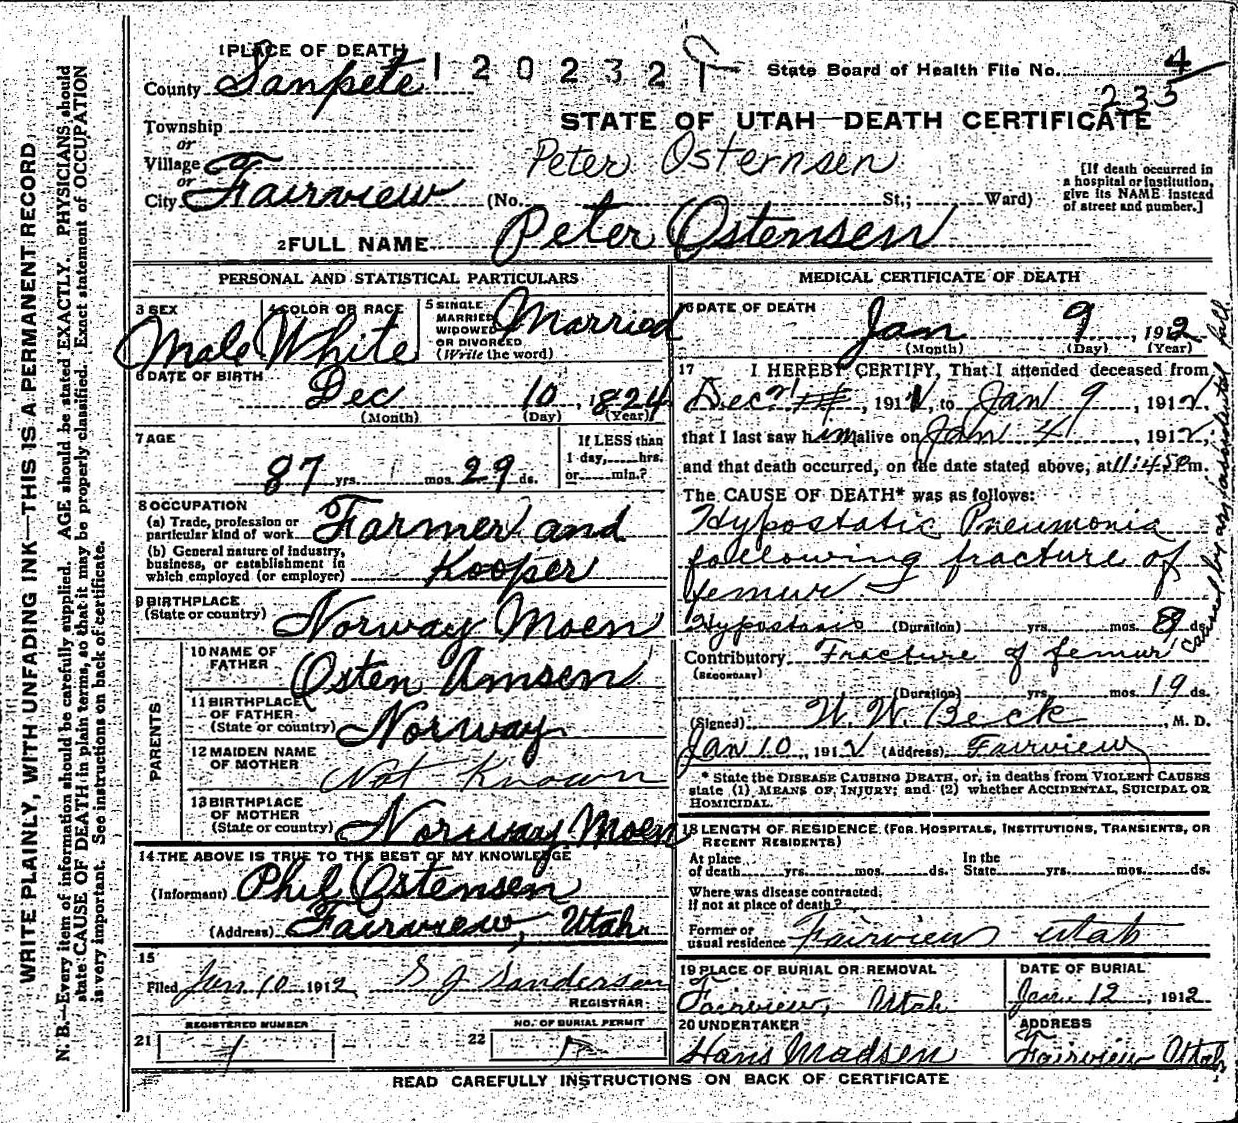 1 PLACE OF DEATH
1202329
State Board of Health File No. 4
233
County Sanpete
STATE OF UTAH—DEATH CERTIFICATE
Township
or
Village
or
City Fairview
Peter Osternsen
(No. St.; Ward)
[If death occurred in
a hospital or institution,
give its NAME instead
of street and number.]
2 FULL NAME Peter Ostensen
PERSONAL AND STATISTICAL PARTICULARS
3 SEX
Male
4 COLOR OR RACE
White
5 SINGLE
MARRIED
WIDOWED
OR DIVORCED
(Write the word)
Married
6 DATE OF BIRTH
Dec 10, 1824
(Month) (Day) (Year)
7 AGE
87 yrs. mos. 29 ds.
If LESS than
1 day, hrs.
or min.?
8 OCCUPATION
(a) Trade, profession or
particular kind of work Farmer and
(b) General nature of industry,
business, or establishment in
which employed (or employer) Kooper
9 BIRTHPLACE
(State or country) Norway Moen
PARENTS
10 NAME OF
FATHER Osten Amsen
11 BIRTHPLACE
OF FATHER
(State or country) Norway
12 MAIDEN NAME
OF MOTHER Not Known
13 BIRTHPLACE
OF MOTHER
(State or country) Norway Moen
14 THE ABOVE IS TRUE TO THE BEST OF MY KNOWLEDGE
(Informant) Phil Ostensen
(Address) Fairview, Utah
15
Filed Jan 10 1912 S J Sanderson
REGISTRAR
21
REGISTERED NUMBER
1
22
NO. OF BURIAL PERMIT
MEDICAL CERTIFICATE OF DEATH
16 DATE OF DEATH
Jan 9, 1912
(Month) (Day) (Year)
17 I HEREBY CERTIFY, That I attended deceased from
Dec 21, 1911, to Jan 9, 1912,
that I last saw him alive on Jan 4, 1912,
and that death occurred, on the date stated above, at 11:45 P m.
The CAUSE OF DEATH* was as follows:
Hypostatic Pneumonia
following fracture of
femur
caused by an accidental fall
Hypostasis (Duration) yrs. mos. 8 ds.
Contributory Fracture of femur
(SECONDARY)
(Duration) yrs. mos. 19 ds.
(Signed) W. W. Beck, M. D.
Jan 10, 1912 (Address) Fairview
* State the DISEASE CAUSING DEATH, or, in deaths from VIOLENT CAUSES
state (1) MEANS OF INJURY; and (2) whether ACCIDENTAL, SUICIDAL OR
HOMICIDAL.
18 LENGTH OF RESIDENCE (FOR HOSPITALS, INSTITUTIONS, TRANSIENTS, OR
RECENT RESIDENTS)
At place
of death yrs. mos. ds.
In the
State yrs. mos. ds.
Where was disease contracted,
if not at place of death?
Former or
usual residence Fairview Utah
19 PLACE OF BURIAL OR REMOVAL
Fairview, Utah
DATE OF BURIAL
Jan. 12, 1912
20 UNDERTAKER
Hans Madsen
ADDRESS
Fairview Utah
READ CAREFULLY INSTRUCTIONS ON BACK OF CERTIFICATE
WRITE PLAINLY, WITH UNFADING INK—THIS IS A PERMANENT RECORD
N. B.—Every item of information should be carefully supplied. AGE should be stated EXACTLY. PHYSICIANS should
state CAUSE OF DEATH in plain terms, so that it may be properly classified. Exact statement of OCCUPATION
is very important. See instructions on back of certificate.